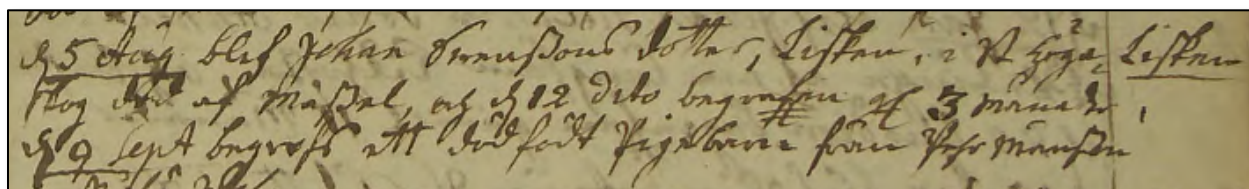 d 5 Aug blef Johan Svenßons dotter, Lisken, i St Höga Lisken
skog död af Mäßel, och d 12 dito begrafven gl 3 månader
d 9 Sept begrofs ett dödfödt Pigebarn från Pehr Månßon